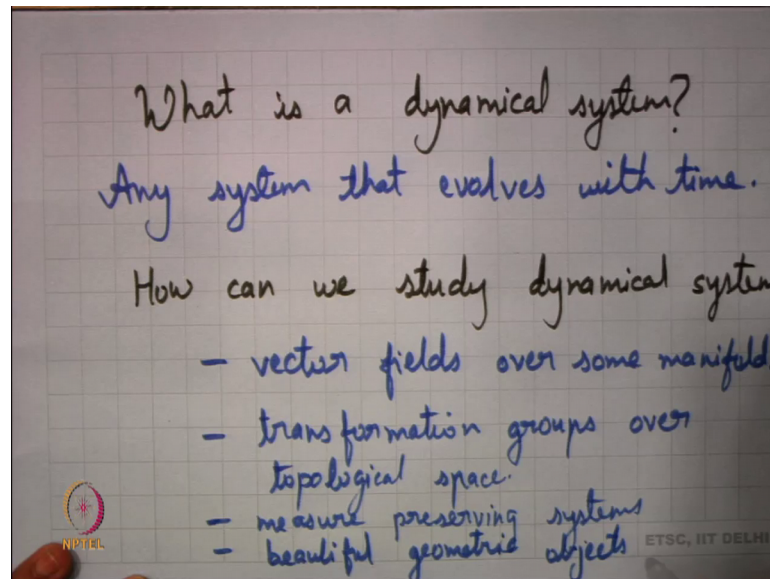 What is a dynamical system?
Any system that evolves with time.
How can we study dynamical system
- vector fields over some manifold
- transformation groups over
topological space.
- measure preserving systems
- beautiful geometric objects
NPTEL
ETSC, IIT DELHI